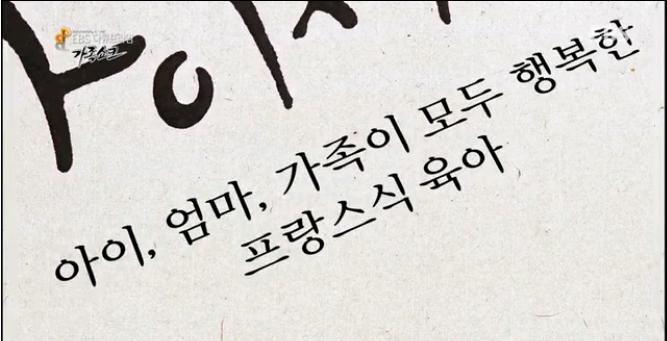 EBS 다큐프라임
가족쇼크
아이, 엄마, 가족이 모두 행복한
프랑스식 육아